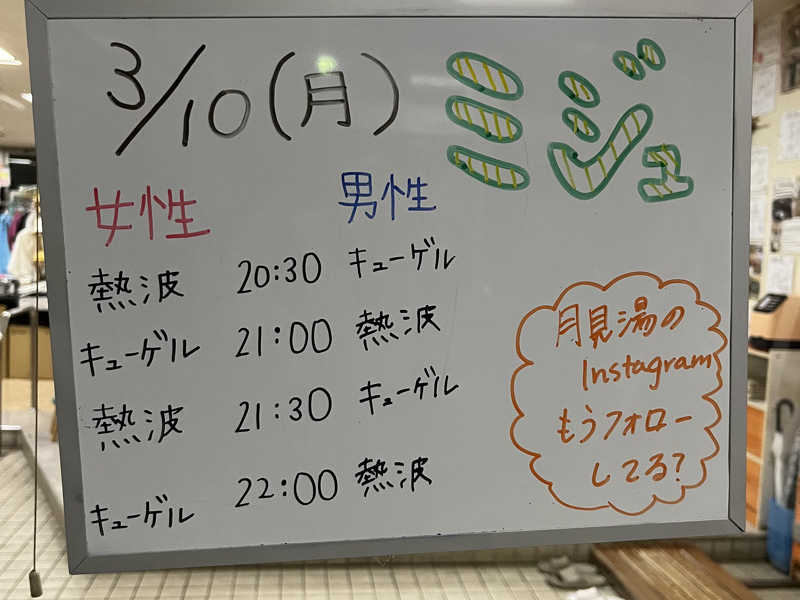 3/10(月) ミジュ
女性 男性
熱波 20:30 キューゲル
キューゲル 21:00 熱波
熱波 21:30 キューゲル
キューゲル 22:00 熱波
月見湯の
Instagram
もうフォロー
してる?